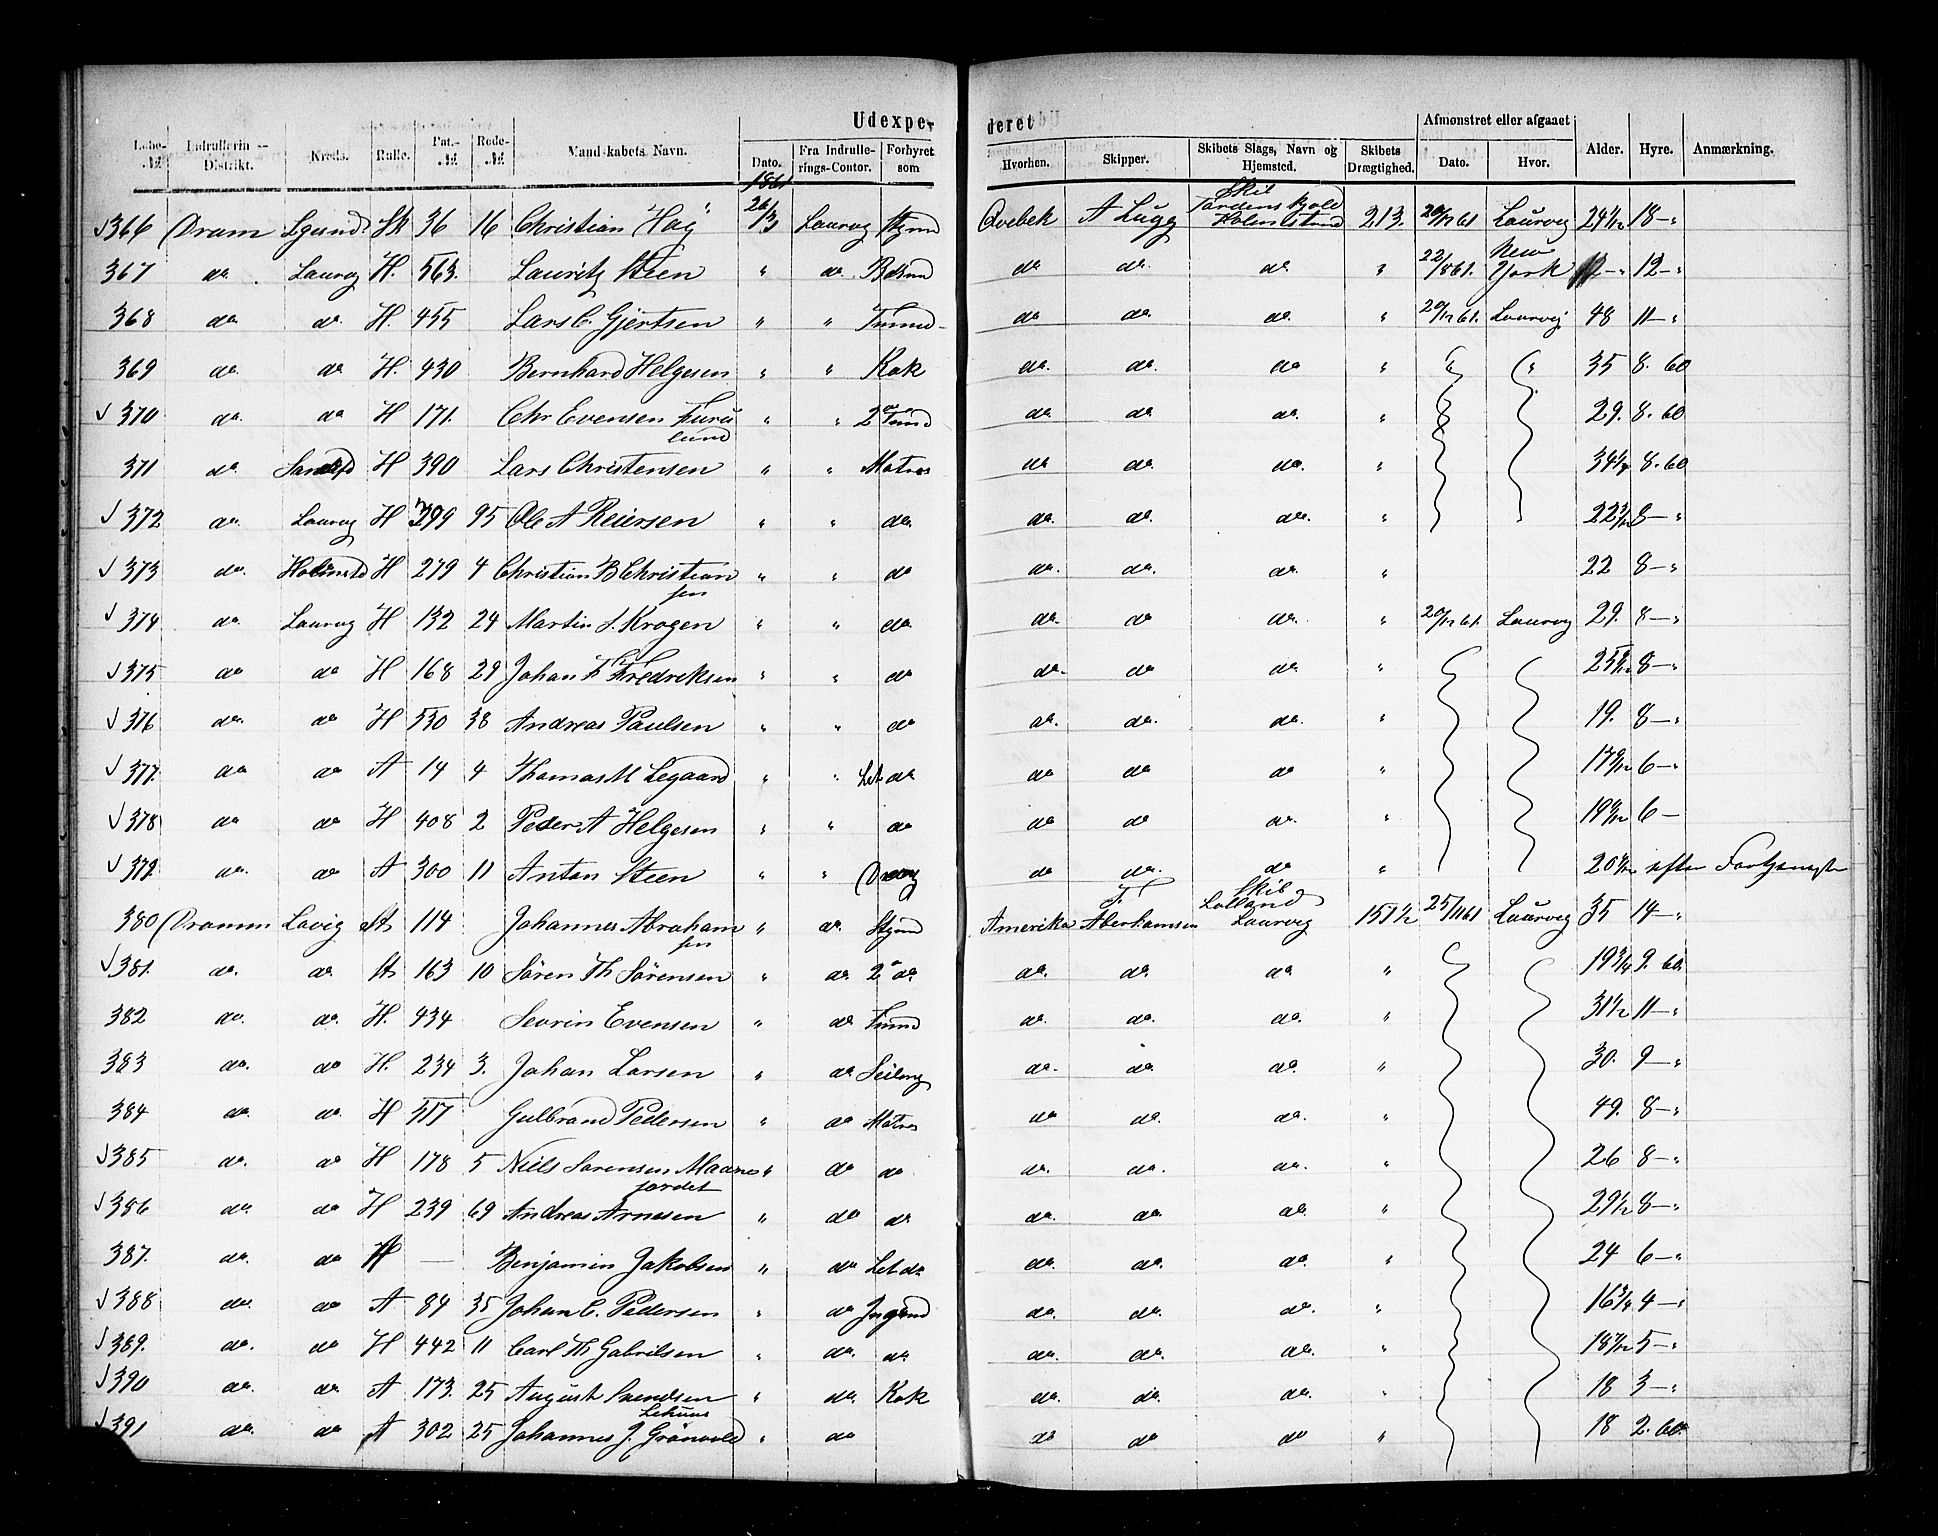 Udexpederet
Løbe-№ Indrullerings-Distrikt. Kreds. Rulle. Pat.-№ Rode-№ Mandskabets Navn. Dato. Fra Indrullerings-Contor. Forhyret som Hvorhen. Skipper. Skibets Slags, Navn og Hjemsted. Skibets Drægtighed. Afmønstret eller afgaaet Dato. Hvor. Alder. Hyre. Anmærkning.
1861
366 Dram Sk 36 16 Christian Høg 26/3 Laurvg Stymd Qvebek A Lugg Skib Tordenskjold Holmestrand 213. 20/12 61 Laurvig 18-"
367 do. Laurvg H. 563. Lauritz Steen " do Bdsmd do do. do " 22/8 61. New York 12-"
368 do do. H. 455 Lars C. Gjertsen " " Tmmd do do. do. " 20/12 61. Laurvig 48 11-"
369 do. do H. 430 Bernhard Helgesen " " Kok do. do. do " 35 8. 60
370 do. do H 171. Chr Evensen Furulund " " 2 Tmmd do. do. do. " 29. 8. 60
371 do H 390 Lars Christensen " " Matros do do. do. " 8. 60
372 do. Laurvg H 399 95 Ole A Reiersen " " do. do. do. do. " 8-"
373 do. Holmestd H 279 4 Christian B Christiansen " " do do. do. do. " 22 8-"
374 do. Laurvg H 132 24 Martin S. Krogen " " do. do. do do. " 20/12 61. Laurvg 29. 8-"
375 do do H 168 29 Johan F Fredriksen " " do do. do do. " 8-"
376 do. do H 530 38 Andreas Paulsen " " do do. do. do. " 19. 8-"
377. do do A 14 4 Thomas M Legaard " " Let do do do do " 6-"
378 do do H 408 2 Peder A Helgesen " " do do do do. " 6-
379 do. do A 300 11 Anton Steen " " do do. do " efter
380 Dramm Lavig St 114 Johannes Abrahamsen " do. Stymd Amerika F. Aberhamsen Skib Lolland Laurvig 151 1/2 25/11 61 Laurvig 35 14-"
381. do. do. St 163 10 Sören Th Sörensen " do. 2 do do. do. do " 19 3/4 9. 60.
382 do. do. H. 434 Sevrin Evensen " do Tmmd do. do. do. " 31 1/2 11-"
383 do. do H. 234 3. Johan Larsen " do do. do. do. " 30. 9-"
384 do. do. H 517 Gulbrand Pedersen " do Matros do do. do. " 49. 8-"
385 do. do H 178 5 Niels Sørensen Maanejordet " do do do. do. do. " 26 8-"
386 do. do H 239 69 Andreas Arnesen " do do do. do. do. " 29 1/2 8-"
387. do. do H — Benjamin Jakobsen " do Let do do. do. do " 24 6-"
388 do. do. A 84 35 Johan C. Pedersen " do Jngmd do. do. do. " 16 3/4 4-"
389. do. do H 442 11 Carl Th Gabrilsen " do. do. do. do. do. " 5-"
390 do. do. A 173. 25 August Svendsen " do. Kok do. do. do. " 18 3-"
391 do. do A 302 25 Johannes J. Grönvold " do do do do " 18 2. 60.